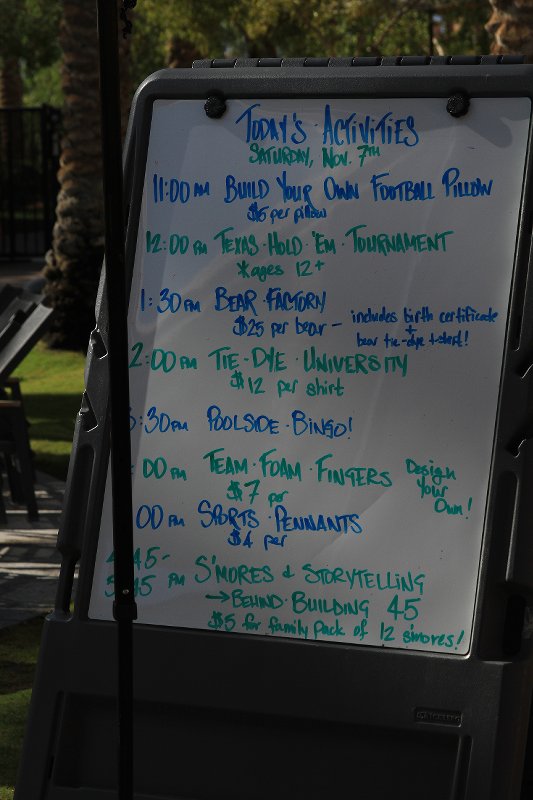 TODAY'S ACTIVITIES
SATURDAY, NOV. 7TH
11:00 AM BUILD YOUR OWN FOOTBALL PILLOW
$5 per pillow
12:00 PM TEXAS · HOLD · 'EM · TOURNAMENT
*ages 12+
1:30 PM BEAR · FACTORY
$25 per bear - includes birth certificate
+
bear tie-dye t-shirt!
2:00 PM TIE · DYE · UNIVERSITY
$12 per shirt
:30 PM POOLSIDE · BINGO!
:00 PM TEAM · FOAM · FINGERS Design
$7 per Your
Own!
00 PM SPORTS · PENNANTS
$4 per
45-
45 PM S'MORES & STORYTELLING
→ BEHIND · BUILDING 45
$5 for family pack of 12 s'mores!